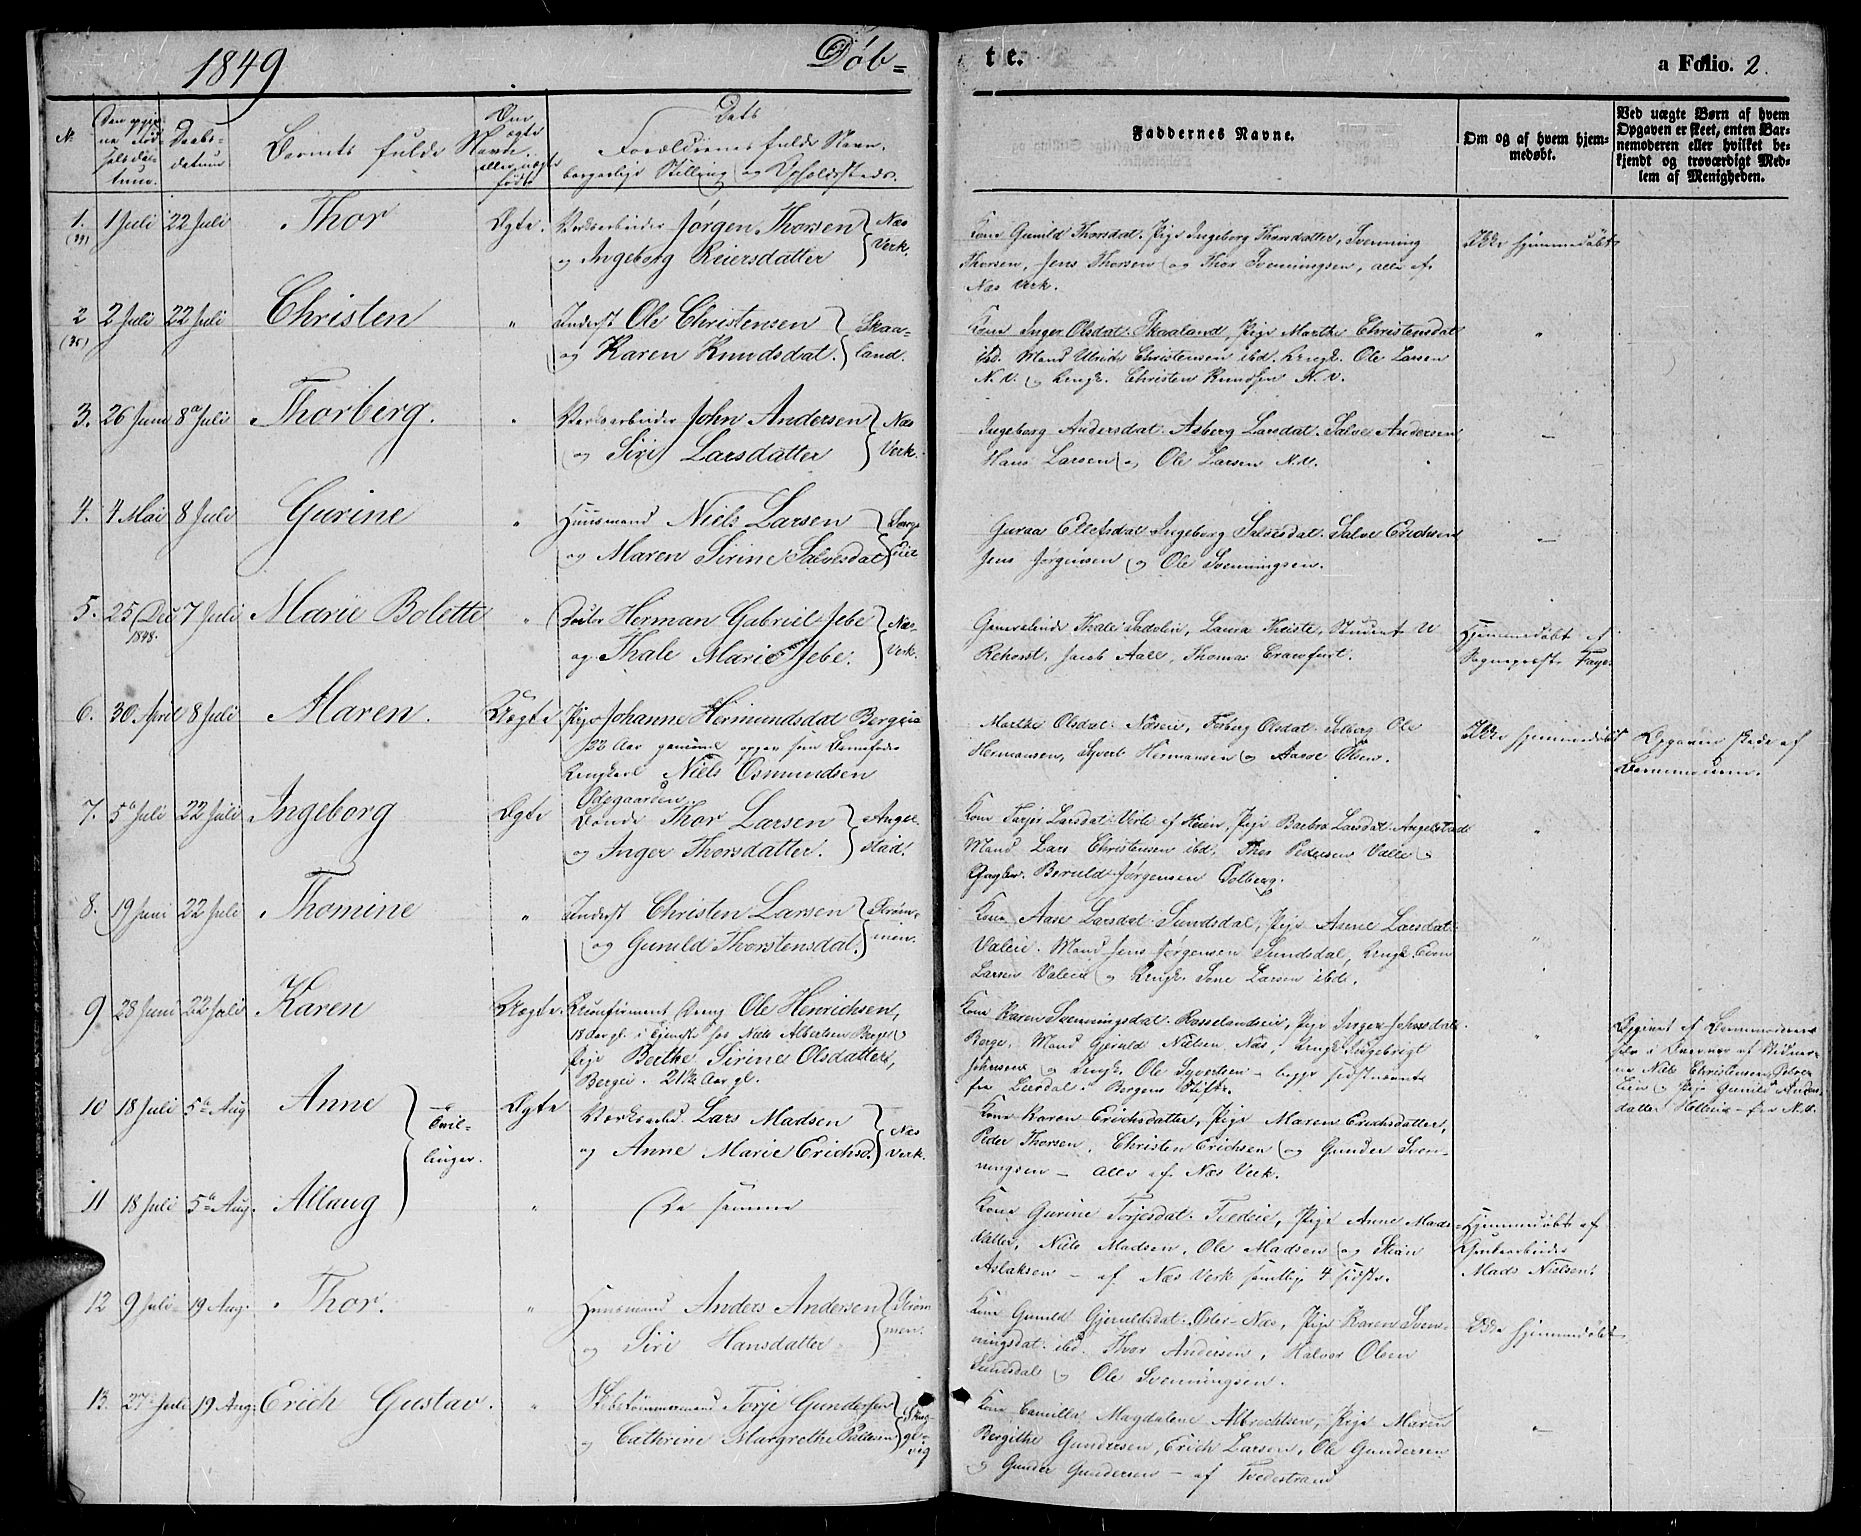 1849
Døb=
te.
a Folio. 2.
No.
Daabs-
datum.
Barnets fulde Navn
Om
ægte
eller uægte
født
Dets
Forældrenes fulde Navn,
borgerlige Stilling og Opholdssted.
Faddernes Navne.
Om og af hvem hjem-
medøbt.
Ved uægte Børn af hvem
Opgaven er skeet, enten Bar-
nemoderen eller hvilket be-
kjendt og troværdigt Med-
lem af Menigheden.
1. 1 Juli 22 Juli Thor Ægte. Verksarbeider Jørgen Thorsen Næs
og Ingeborg Reiersdatter Verk.
Kone Gunild Thorsdat. Pige Ingeborg Thorsdatter, Svenning
Thorsen, Jens Thorsen og Thor Svenningsen, alle af
Næs Verk.
Ikke hjemmedøbt
2 2 Juli 22 Juli Christen " Inderst Ole Christensen Skaa-
og Karen Knudsdat. land.
Kone Inger Olsdat. Skaaland, Pige Marthe Christensdat
ibd. Mand Ulrich Christensen ibd. Ungk. Ole Larsen
N.V. og Ungk. Christen Knudsen N.V.
"
3. 26 Juni 8de Juli Thorberg. " Verksarbeider John Andersen Næs
og Siri Larsdatter Verk.
Ingeborg Andersdat. Asberg Larsdat. Salve Andersen
Hans Larsen og Ole Larsen N.V.
"
4. 4 Mai 8 Juli Gurine " Huusmand Niels Larsen
og Maren Sirine Salvesdat
Guraa Ellefsdat Ingeborg Salvesdat. Salve Erichsen
Jens Jørgensen og Ole Svenningsen.
"
5. 25 Dec 7 Juli Marie Bolette " Herman Gabriel Jebe Næs-
1848.
og Thale Marie Jebe. Verk.
Thale Sadolin, Laura Thriste, Student U
Jacob Aall, Thomas Crawfurt.
Hjemmedøbt af
Sognepræst Faye
6. 30 April 8 Juli Maren. Uægte Pige Johanne Hermundsdat Berge
22 Aar gammel opgav som Barnefader
Ungkarl Niels Osmundsen
Ødegaarden
Marthe Olsdat. Olsdat. Solberg Ole
Hermansen, Syvert Hermansen og Aasse Olsen.
Ikke hjemmedøbt
Opgaven skede af
Barnemoderen.
7. 5te Juli 22 Juli Ingeborg Ægte Bonde Thor Larsen Angel-
og Inger Thorsdatter. stad.
Kone Tarjer Larsdat. Pige Barbro Larsdat. Angelstad
Mand Lars Christensen ibd. Thor Pedersen Valle og
Beruld Jørgensen Solberg.
"
8. 19 Juni 22 Juli Thomine " Inderst Christen Larsen Strøm-
og Gunild Thorstensdat. men.
Kone Aase Larsdat. Sundsdal, Pige Anne Larsdat.
Valeie. Mand Jens Jørgensen Sundsdal, Ungk. Even
Larsen Valeie og Ungk. Sone Larsen ibd.
"
9 28 Juni 22 Juli Karen Uægte. Ukonfirmeret Dreng Ole Henrichsen,
18 Aar gl. i Tjeneste hos Niels Albertsen Berge og
Pige Berthe Sirine Olsdatter,
Berge. 21½ Aar gl.
Kone Karen Svenningsdat. Rosselandseie, Pige Inger Johnsdat.
Berge. Mand Gjeruld Nielsen Næs, Ungk. Ingebrigt
Johnsen og Ungk. Ole Syvertsen — begge sidstnævnte
fra Leirdal. Bergens Stift.
"
Opgivet af Barnemoderen
selv i Nærvær af Vidner-
ne Niels Christensen
eie og Pige Gunild Anders-
datter Holteie — fra N.V.
10 18 Juli 5te Aug Anne Tvil-
linger. Ægte Værksarbeid. Lars Madsen Næs
og Anne Marie Erichsd. Verk.
Kone Karen Erichsdatter, Pige Maren Erichsdatter,
Peder Thorsen, Christen Erichsen og Gunder Sven-
ningsen — alle af Næs Verk.
11 18 Juli 5te Aug. Allaug " De samme
Kone Gurine Torjesdat. Tvedeie, Pige Anne Mads-
datter, Niels Madsen, Ole Madsen og Stian
Aslaksen — af Næs Verk samtlige 4 sidste.
Hjemmedøbt af
Grubearbeider
Mads Nielsen.
12 9 Juli 19 Aug. Thor. " Huusmand Anders Andersen Strøm
og Siri Hansdatter men.
Kone Gunild Gjeruldsdat. Oster-Næs, Pige Karen Sven-
ningsdat. ibd. Thor Andersen, Halvor Olsen
Sundsdal og Ole Svenningsen.
Ikke hjemmedøbt
13. 27 Juli 19 Aug. Erich Gustav. " Skibstømmermand Torje Gundersen
og Cathrine Margrethe
Kone Camilla Magdalene Albrechtsen, Pige Maren
Bergithe Gundersen, Erich Larsen, Ole Gundersen
og Gunder Gundersen — af Tvedestrand
"